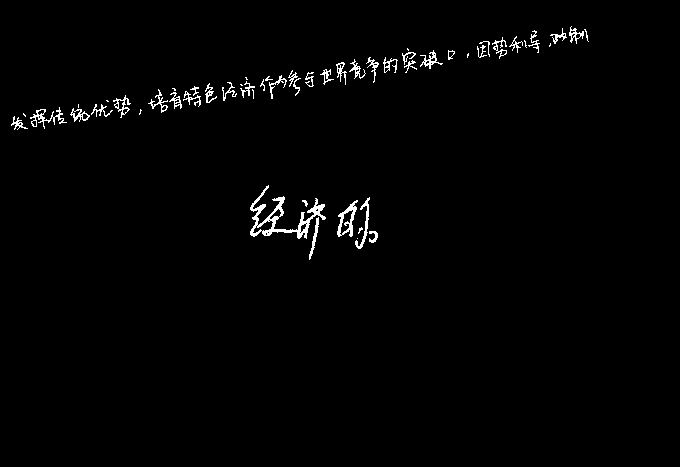 发挥传统优势，培育特色经济作为参与世界竞争的突破口，因势利导，
经济的。